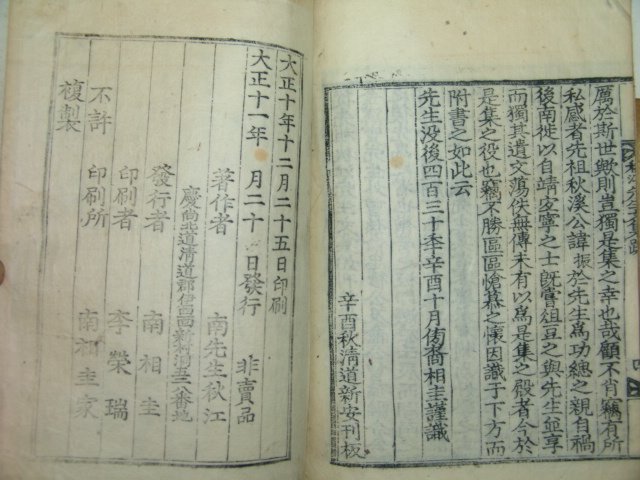 厲於斯世歟則豈獨是集之幸也哉顧不肖竊有所
私感者先祖秋溪公諱振於先生爲功緦之親自禍
後南徙以自靖安寧之士旣嘗俎豆之與先生並享
而獨其遺文蕩佚無傳未有以爲是集之殿者今於
是集之役也竊不勝區區愴慕之懷因識于下方而
附書之如此云
先生没後四百三十季辛酉十月傍裔相圭謹識
辛酉秋淸道新安刊板
大正十年十二月二十五日印刷
大正十一年 月二十 日發行 非賣品
著作者 南先生秋江
慶尙北道淸道郡伊西面新 洞五二番地
發行者 南相圭
印刷者 李榮瑞
印刷所 南相圭家
不許
複製